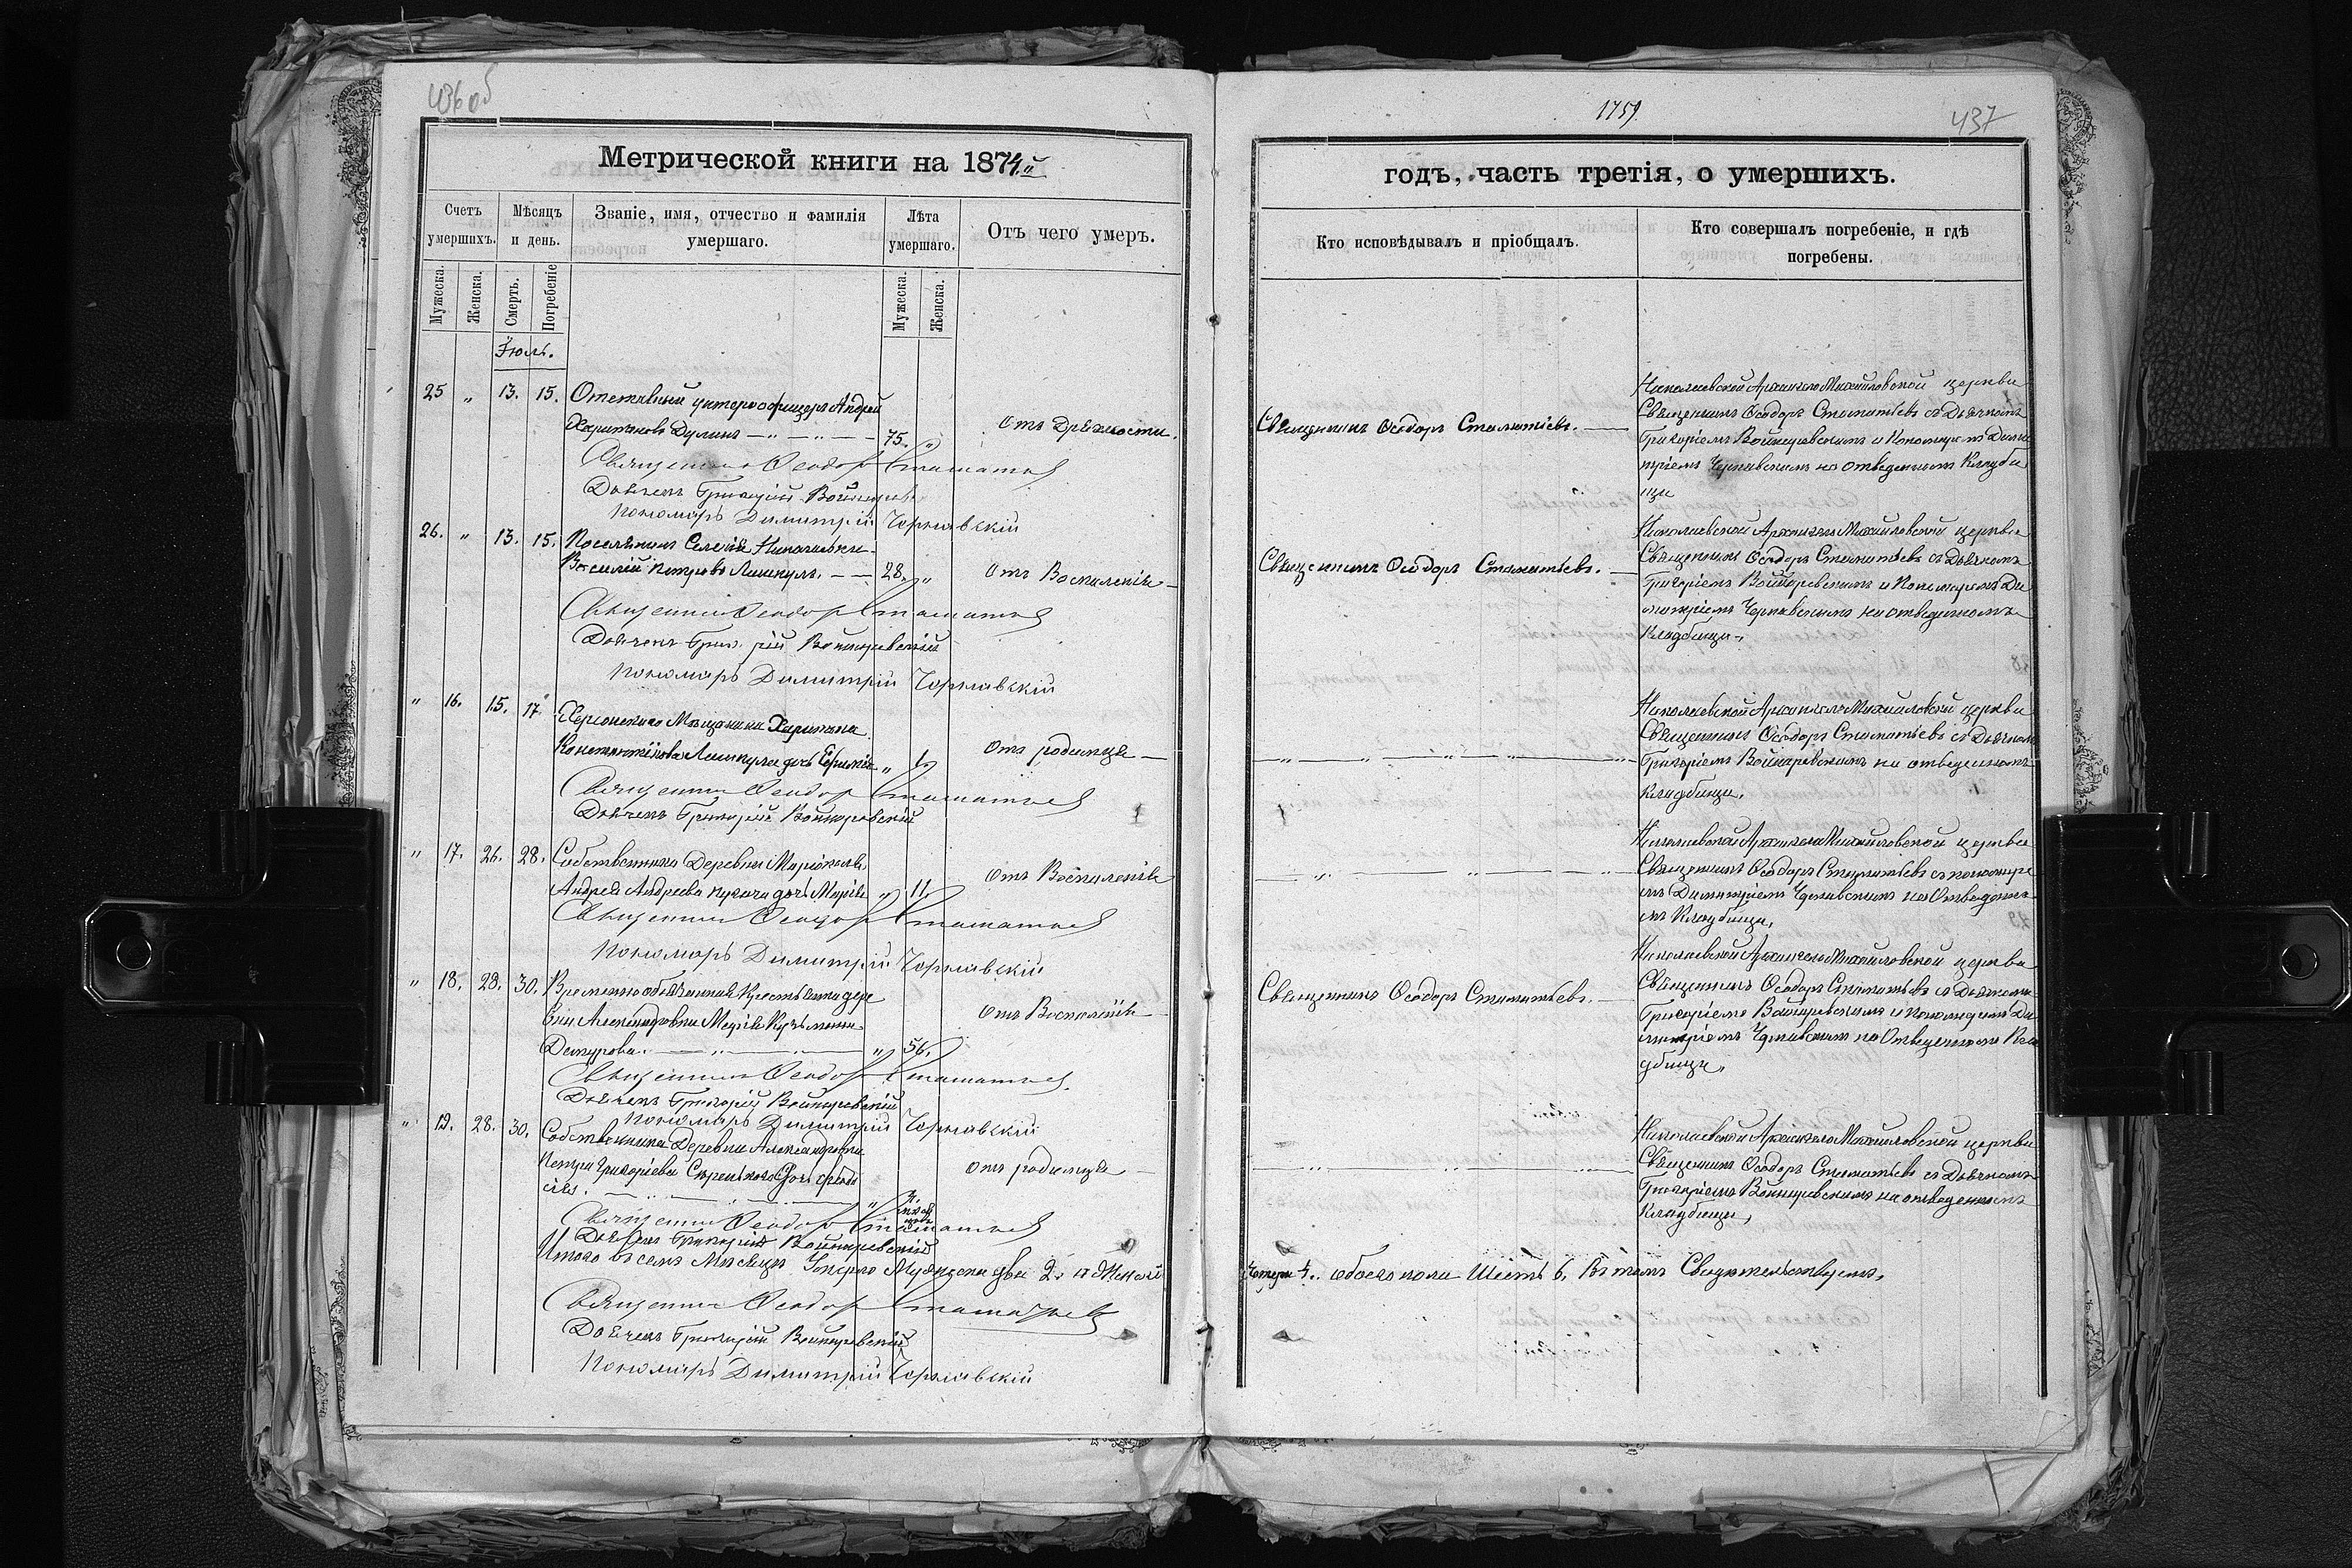 436 об
Метрической книги на 1874.й
Счетъ умершихъ.
Мѣсяцъ и день.
Званіе, имя, отчество и фамилія умершаго.
Лѣта умершаго.
Отъ чего умеръ.
Мужеска.
Женска.
Смерть.
Погребеніе
Мужеска.
Женска.
Іюль.
25 „ 13. 15. Отставный унтерофицеръ Андрей
Харитоновъ Дулинъ — „ — „ — — 75. „ Отъ Дряхлости.
Священникъ Феодоръ Стаматьевъ
Дьячекъ Григорій Войнаровскій
Пономарь Димитрій Чорнавскій
26. „ 13. 15. Поселянинъ Николаевки
Василій Петровъ — — 28. „ Отъ Воспаленія —
Священникъ Феодоръ Стаматьевъ
Дьячекъ Григорій Войнаровскій
Пономарь Димитрій Чорнавскій
„ 16. 15. 17. Херсонскаго Мѣщанина Харитона
Константинова дочь „ 1. Отъ родимца —
Священникъ Феодоръ Стаматьевъ
Дьячекъ Григорій Войнаровскій
„ 17. 26. 28. Собственника Деревни
Андрея Андреева дочь Марія „ 11 Отъ Воспаленія
Священникъ Феодоръ Стаматьевъ
Пономарь Димитрій Чорнавскій
„ 18. 28. 30. Временно обязанная Крестьянка дере
вни Александровки Марія Кузьмина
„ 56. Отъ Воспаленія —
Священникъ Феодоръ Стаматьевъ
Дьячекъ Григорій Войнаровскій
Пономарь Димитрій Чорнавскій
„ 19. 28. 30. Собственника Деревни Александровки
Петра Григоріева дочь
отъ родимца —
Священникъ Феодоръ Стаматьевъ
Дьячекъ Григорій Войнаровскій
Итого въ семъ Мѣсяцѣ Умерло Мужеска два 2. а Женска
Священникъ Феодоръ Стаматьевъ
Дьячекъ Григорій Войнаровскій
Пономарь Димитрій Чорнавскій
1759
437
годъ, часть третія, о умершихъ.
Кто исповѣдывалъ и пріобщалъ.
Кто совершалъ погребеніе, и гдѣ погребены.
Священникъ Феодоръ Стаматьевъ. —
Николаевской Архангело Михайловской церкви
Священникъ Феодоръ Стаматьевъ съ Дьячкомъ
Григоріемъ Войнаровскимъ и Пономаремъ Дими
тріемъ Чернавскимъ на отведенномъ Кладби
щи
Священникъ Феодоръ Стаматьевъ. —
Николаевской Архангело Михайловской церкви
Священникъ Феодоръ Стаматьевъ съ Дьячкомъ
Григоріемъ Войнаровскимъ и Пономаремъ Ди
митріемъ Чернавскимъ на отведенномъ
Кладбищи.
Николаевской Архангело Михайловской церкви
Священникъ Феодоръ Стаматьевъ съ Дьячкомъ
Григоріемъ Войнаровскимъ на отведенномъ
кладбищи.
Николаевской Архангело Михайловской церкви
Священникъ Феодоръ Стаматьевъ съ пономаре
мъ Димитріемъ Чернавскимъ на Отведенно
мъ Кладбищи.
Священникъ Феодоръ Стаматьевъ. —
Николаевской Архангело Михайловской церкви
Священникъ Феодоръ Стаматьевъ съ Дьячкомъ
Григоріемъ Войнаровскимъ и Пономаремъ Ди
митріемъ Чернавскимъ на Отведенномъ Кла
дбищи.
Николаевской Архангело Михайловской церкви
Священникъ Феодоръ Стаматьевъ съ Дьячкомъ
Григоріемъ Войнаровскимъ на отведенномъ
Кладбищи,
Четыри 4. обоего пола Шесть 6. Въ томъ Свидетельствуемъ.